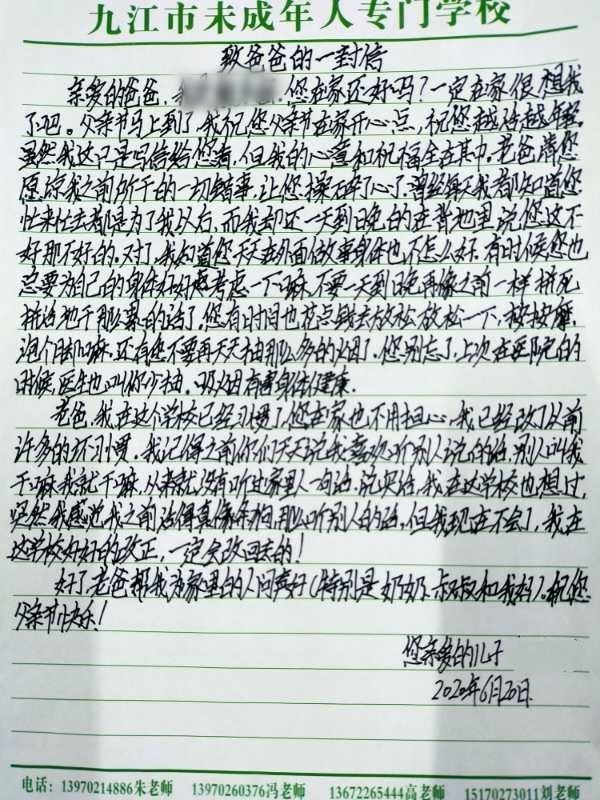 九江市未成年人专门学校
致爸爸的一封信
亲爱的爸爸,您在家还好吗?一定在家很想我
了吧。父亲节马上到了,我祝您父亲节在家开心点,祝您越活越年轻。
虽然我这只是写信给您看,但我的心意和祝福全在其中。老爸请您
原谅我之前所干的一切错事,让您操碎了心了曾经每天我都知道您
忙来忙去都是为了我以后,而我却还一天到晚的在背地里说您这不
好那不好的。对了,我知道您天天在外面做事身体也不怎么好.有时候您也
总要为自己的身体好好考虑一下嘛,不要一天到晚再像之前一样拼死
拼活地干那么累的活了,您有时间也花点钱去放松放松一下,按按摩,
泡个脚嘛,还有您不要再天天抽那么多的烟了.您别忘了,上次在医院的
时候,医生也叫你少抽。吸烟有害身体健康.
老爸,我在这个学校已经习惯了您在家也不用担心,我已经改了以前
许多的坏习惯。我记得之前你们天天说我喜欢听别人说的话,别人叫我
干嘛我就干嘛,从来就没有听过家里人一句话,说实话,我在这学校也想过,
突然我感觉我之前活得真像条狗,那么听别人的话,但我现在不会了,我在
这学校好好的改正,一定会改回去的!
好了,老爸帮我为家里的人问声好(特别是奶奶.叔叔和我妈).祝您
父亲节快乐!
您亲爱的儿子
2020年6月20日.
电话:13970214886朱老师 13970260376冯老师 13672265444高老师 15170273011刘老师